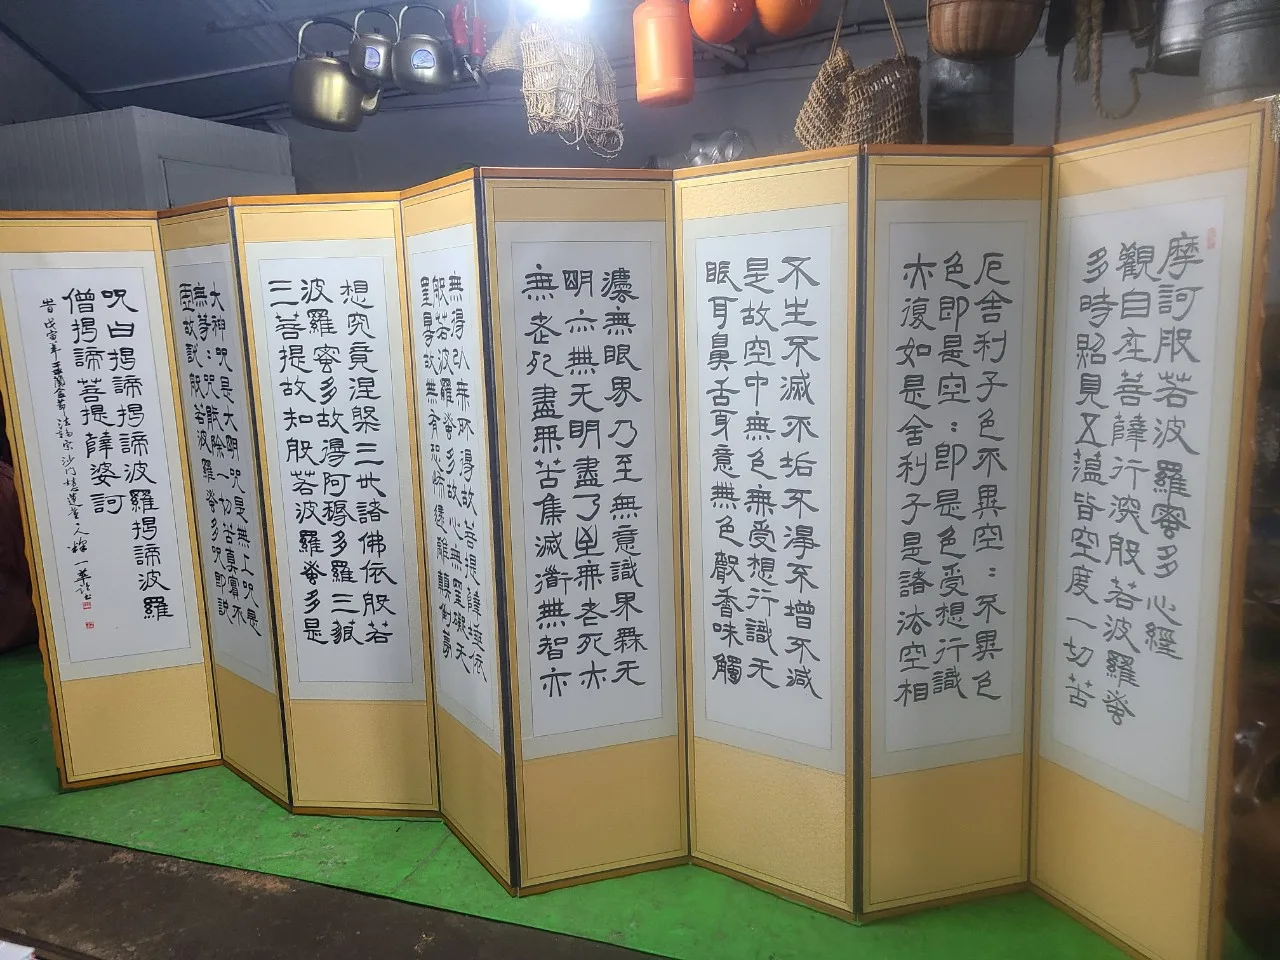 摩訶般若波羅蜜多心經
觀自在菩薩行深般若波羅蜜
多時照見五蘊皆空度一切苦
厄舍利子色不異空:不異色
色即是空:即是色受想行識
亦復如是舍利子是諸法空相
不生不滅不垢不淨不增不減
是故空中無色無受想行識无
眼耳鼻舌身意無色聲香味觸
法無眼界乃至無意識界無无
明亦無无明盡乃至無老死亦
無老死盡無苦集滅道無智亦
無得以無所得故菩提薩埵依
般若波羅蜜多故心無罣礙无
罣礙故無有恐怖遠離顛倒夢
想究竟涅槃三世諸佛依般若
波羅蜜多故得阿耨多羅三藐
三菩提故知般若波羅蜜多是
大神咒是大明咒是無上咒是
無等:咒能除一切苦真實不
虛故說般若波羅蜜多咒即說
呪曰揭諦揭諦波羅揭諦波羅
僧揭諦菩提薩婆訶
戊寅年